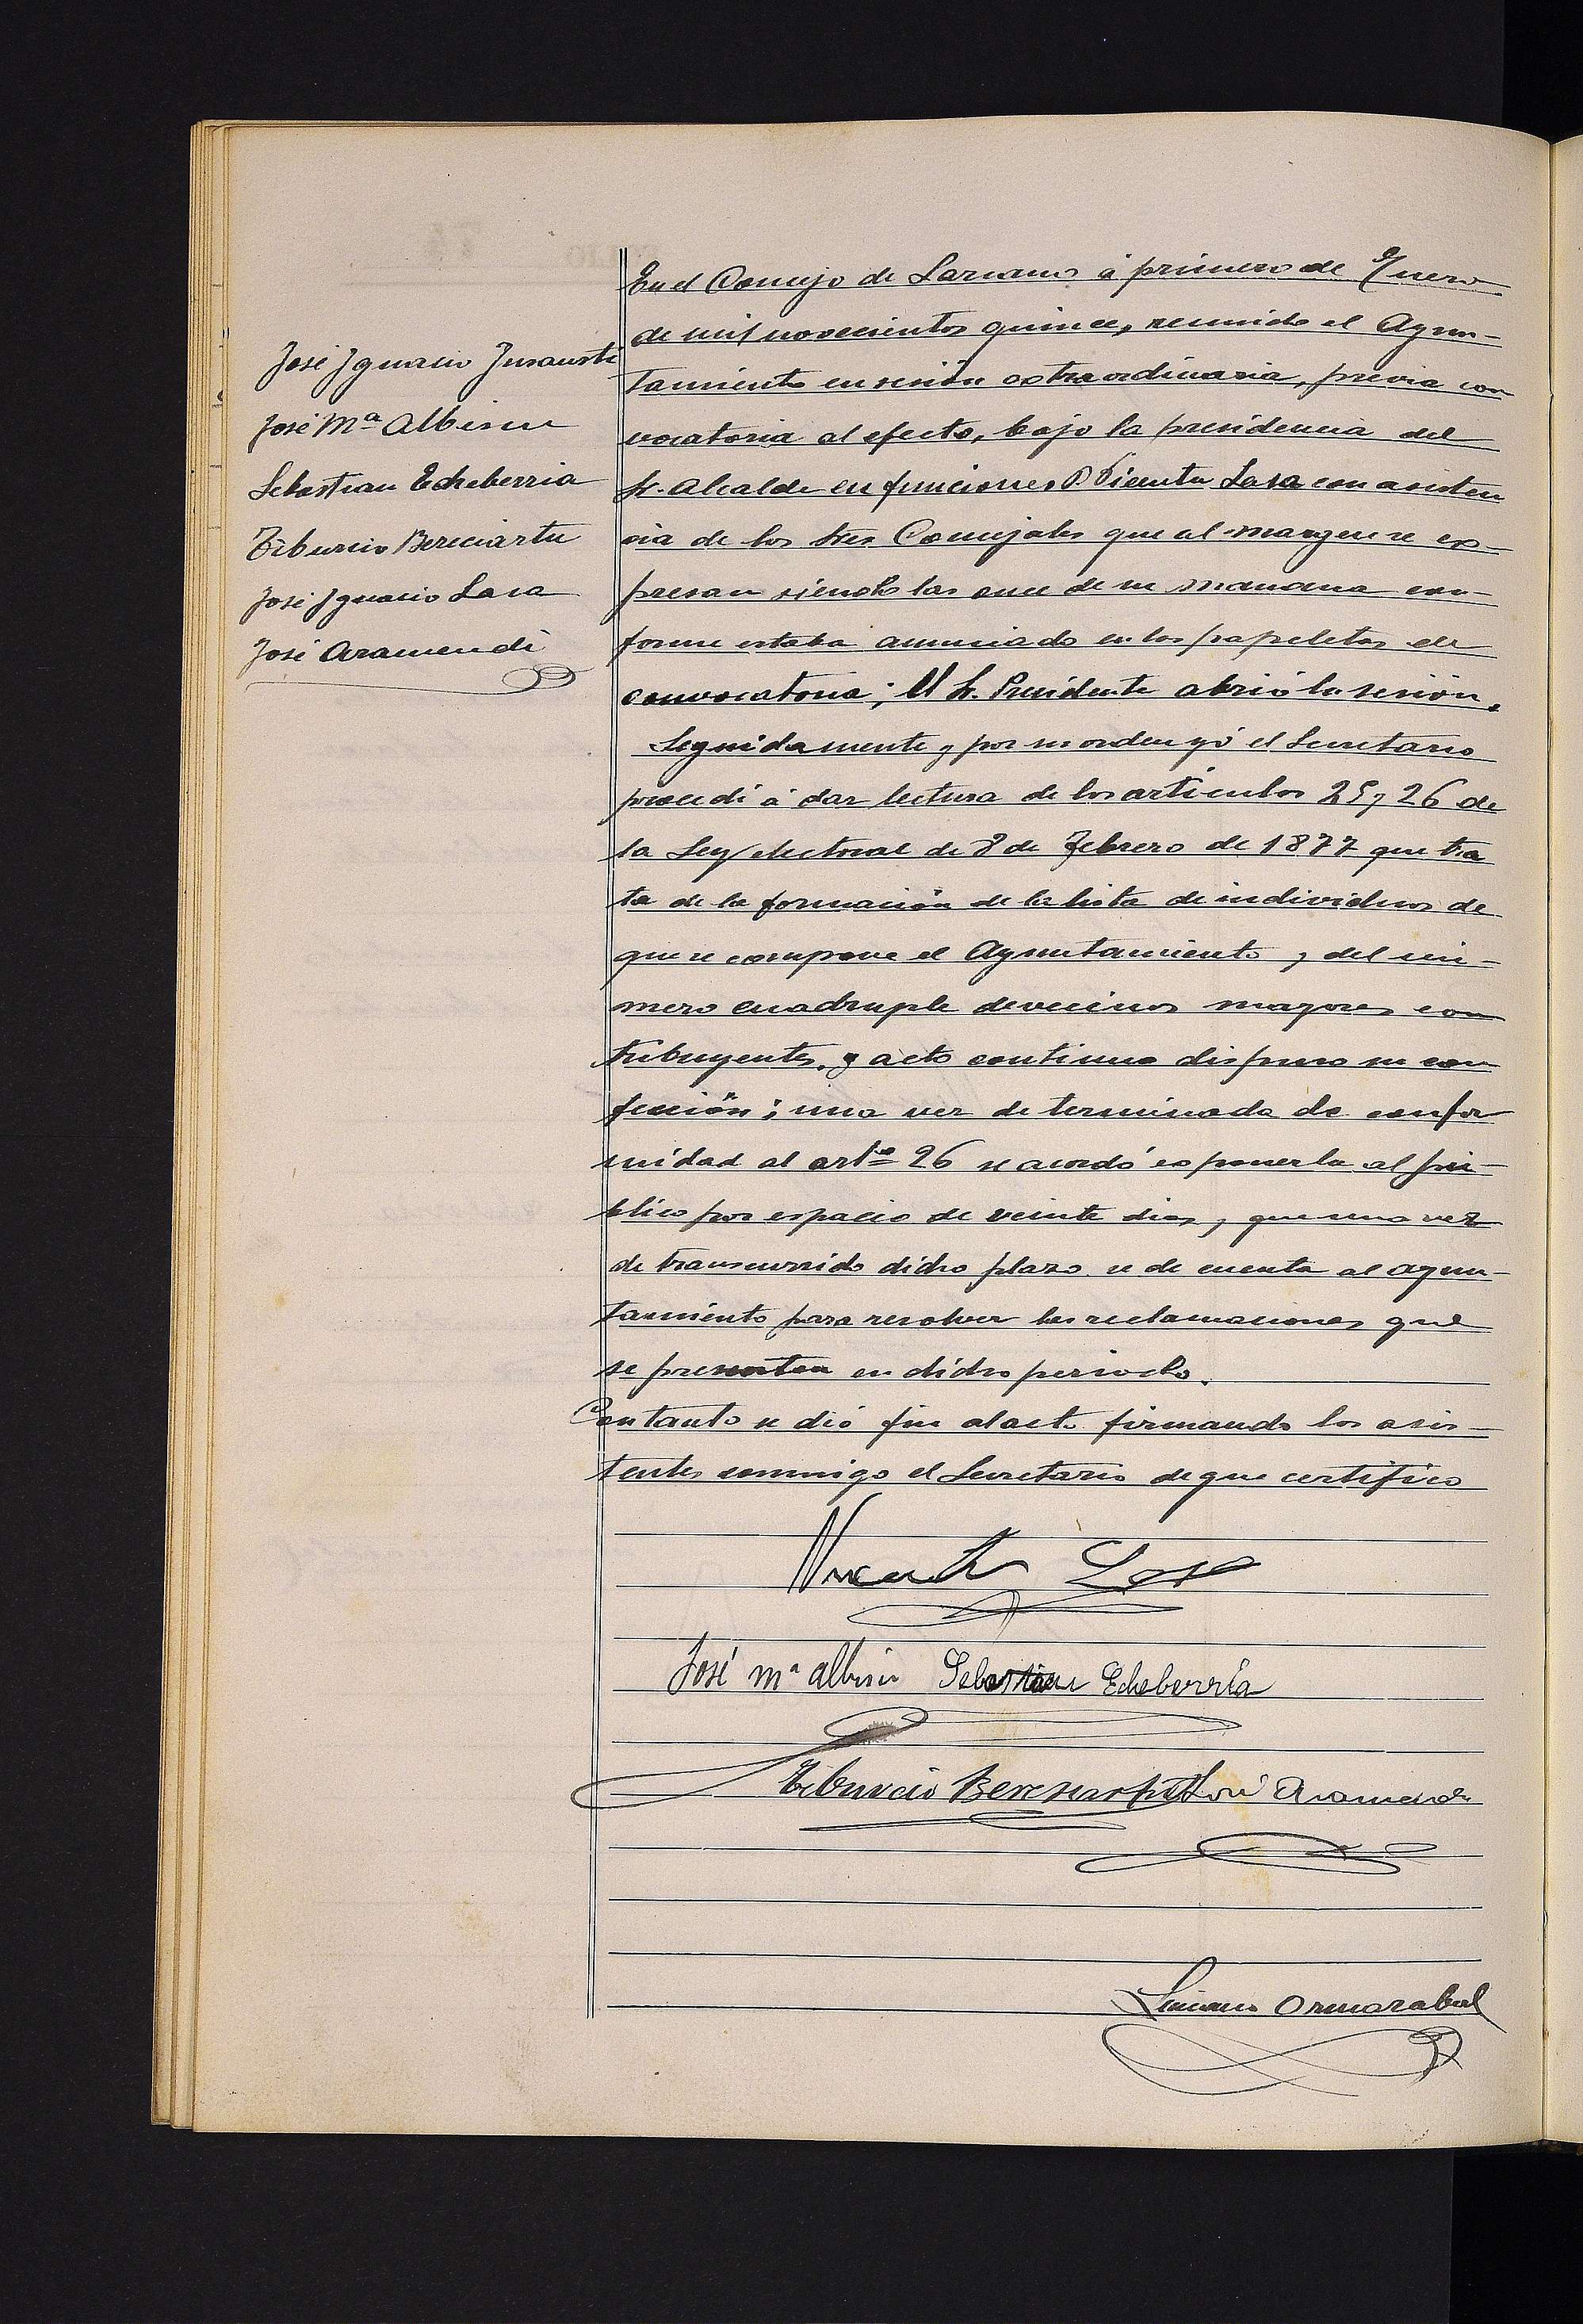 José Ygnacio Insausti
José Mª Albisu
Sebastian Echeberria
Tiburcio Bereciartu
José Ygnacio Lasa
José Aramendi
En el Concejo de Lazcano á primero de Enero
de mil novecientos quince, reunido el Ayun-
tamiento en sesión extraordinaria, previa con
vocatoria al efecto, bajo la presidencia del
Sr. Alcalde en funciones D. Vicente Lasa con asisten
cia de los Sres Concejales que al margen se ex-
presan siendo las once de su mañana con-
forme estaba anunciado en las papeletas de
convocatoria; El Sr. Presidente abrió la sesión.
Seguidamente y por su orden yó el Secretario
procedí á dar lectura de los artículos 25 y 26 de
la Ley electoral de 8 de Febrero de 1877 que tra
ta de la formación de la lista de individuos de
que se compone el Ayuntamiento y del nú-
mero cuadruple de vecinos mayores con
tribuyentes, y acto continuo dispuso su con
fección; una vez de terminada de confor
midad al artº 26 se acordó exponerla al pú-
blico por espacio de veinte dias, y que una vez
de transcurrido dicho plazo se de cuenta al ayun-
tamiento para resolver las reclamaciones que
se presenten en dicho periodo.
Con tanto se dió fin al acto firmando los asis-
tentes conmigo el Secretario de que certifico
Vicente Lasa
José Mª Albisu Sebastian Echeberria
Tiburcio Bereciartu José Aramendi
Ormazabal